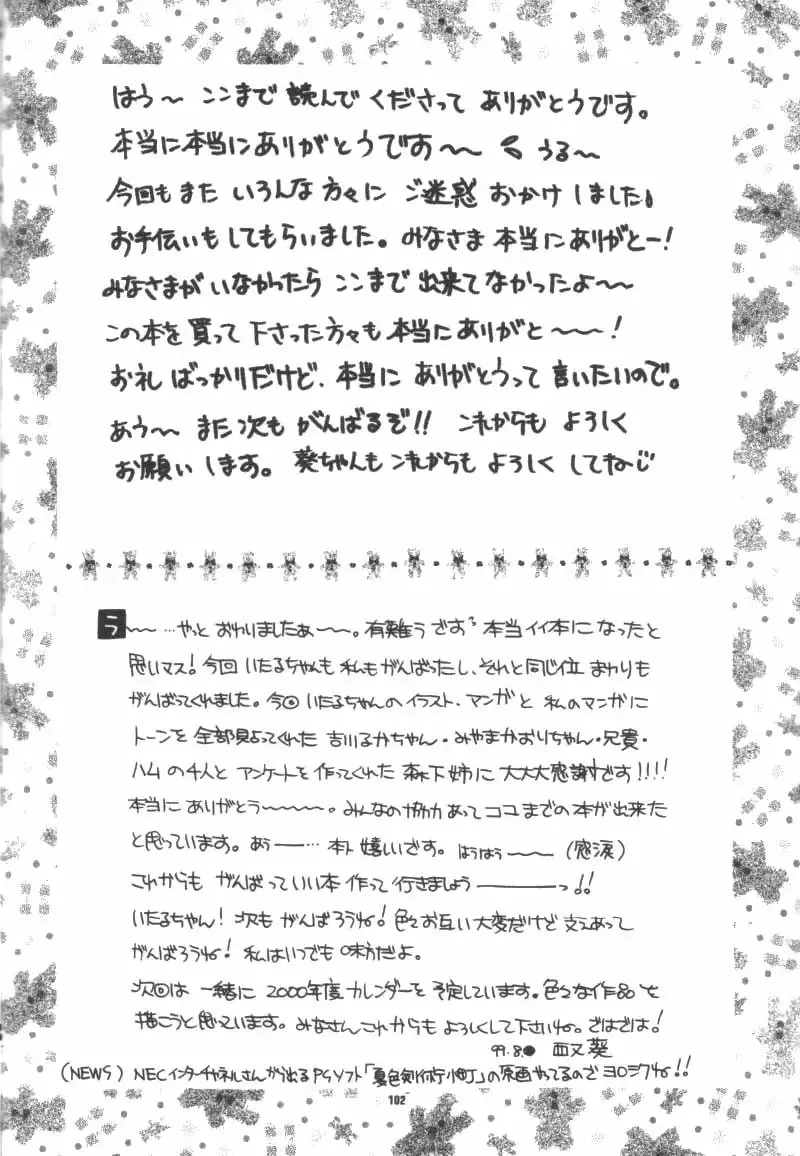 はう〜 ここまで 読んで くださって ありがとうです。
本当に本当にありがとうですの〜〜 うる〜
今回もまた いろんな 方々に ご迷惑 おかけ しました
お手伝いもしてもらいました。みなさま 本当にありがとー!
みなさまが いなかったら ここまで 出来てなかったよ〜〜
この本を買って下さった方々も本当にありがと〜〜!
お礼 ばっかりだけど、本当に ありがとうって 言いたいので。
あう〜 また次も がんばるぞ!! これからも よろしく
お願い します。 葵ちゃんも これからも よろしく してねじ
う〜〜…やっと おわりましたぁ〜〜。有難う ございます 本当 イイ本に なったと
思いマス! 今回 いたるちゃんも 私もがんばったし、それと同じ位 まわりも
がんばってくれました。今回 いたるちゃんの イラスト、マンガと 私のマンガに
トーンを 全部貼ってくれた 吉川るかちゃん・みやまかおりちゃん・兄貴・
ハムの4人と アンケートを 作ってくれた 森下姉に 大大大感謝です!!!!
本当に ありがとう〜〜〜。みんなの協力 あって ココまでの本が出来た
と思っています。あぅ——… 本ト 嬉しいです。 はうはう〜〜 (感涙)
これからも がんばって いい本 作って 行きましょう———っ!!
いたるちゃん! 次も がんばろうね! 色々お互い 大変だけど 支えあって
がんばろうね! 私はいつでも 味方だよ。
次回は 一緒に 2000年度 カレンダーを 予定しています。色々な作品を
描こうと思っています。みなさん これからも よろしくして下さいね。ではでは!
99.8 葵
(NEWS) NECインターチャネルさんから出る PSソフト「夏色剣術小町」の原画やってるので ヨロシクね!!
102